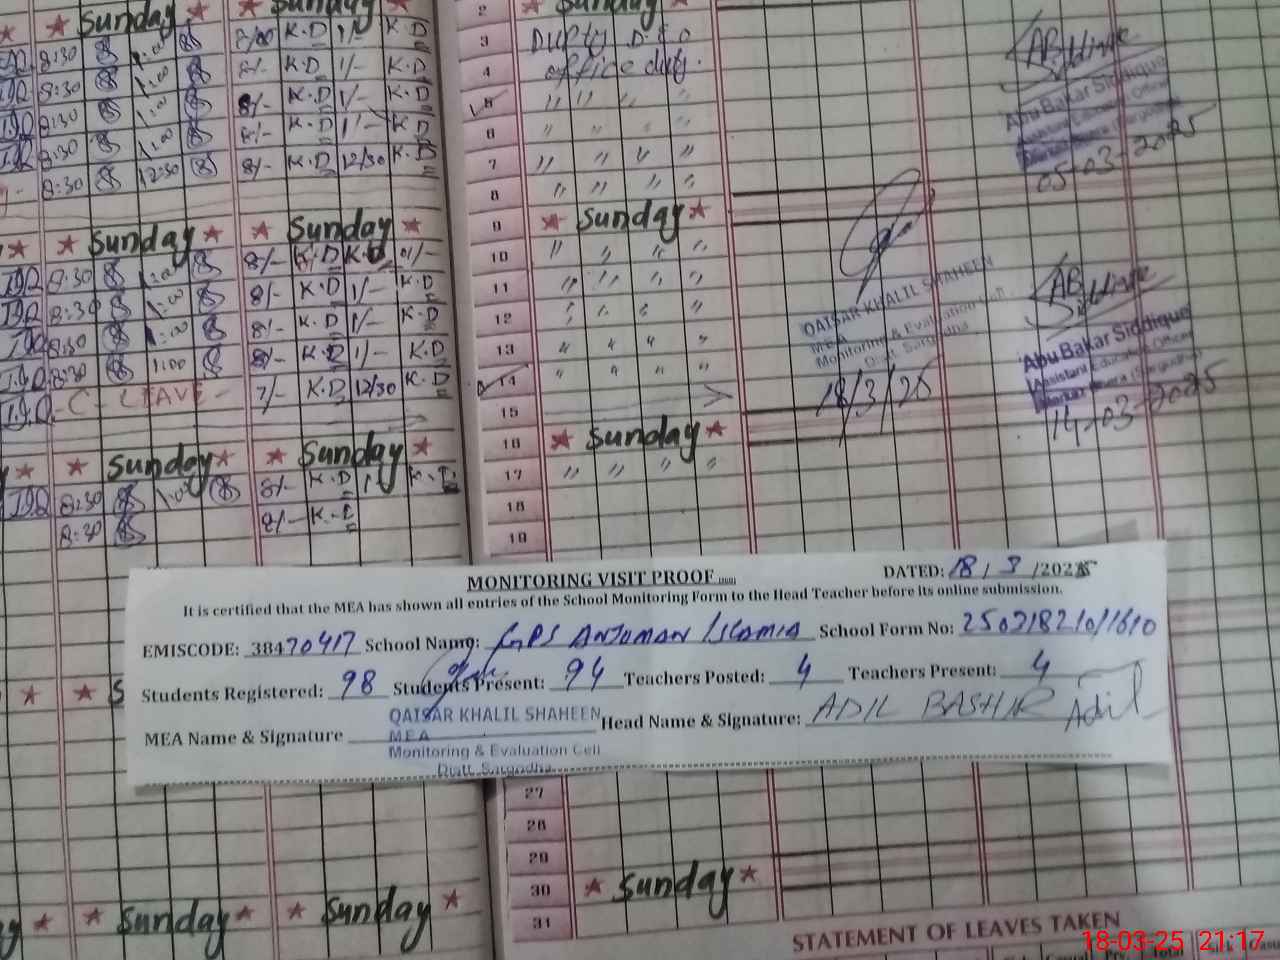 Sunday Sunday
8:30 1:00 8/00 K.D 1/- K.D
8:30 1:00 8/- K.D 1/- K.D
8:30 1:00 8/- K.D 1/- K.D
8:30 1:00 8/- K.D 1/- K.D
8:30 12:30 8/- K.D 12/30 K.D
Sunday Sunday
8:30 1:00 8/- K.D
8:30 1:00 8/- K.D 1/- K.D
8:30 1:00 8/- K.D 1/- K.D
8:30 1:00 8/- K.D 1/- K.D
C - LEAVE - 7/- K.D 12/30 K.D
Sunday Sunday
8:30 1:00 8/- K.D K.D
8:30 8/- K.D
Sunday Sunday
2 Sunday
3
4 office duty.
5 " " " "
6 " " " "
7 " " " "
8 " " " "
9 Sunday
10 " " " "
11 " " " "
12 " " " "
13 " " " "
14 " " " "
15
16 Sunday
17 " " " "
18
19
27
28
29
30 Sunday
31
Abu Bakar Siddique
Assistant Education Officer
05-03-2025
QAISAR KHALIL SHAHEEN
MEA
Monitoring & Evaluation Cell
Distt. Sargodha
18/3/25
Abu Bakar Siddique
Assistant Education Officer
14-03-2025
MONITORING VISIT PROOF
DATED: 18/3/2025
It is certified that the MEA has shown all entries of the School Monitoring Form to the Head Teacher before its online submission.
EMISCODE: 38470417 School Name: GPS ANJUMAN ISLAMIA School Form No:
Students Registered: 98 Students Present: 94 Teachers Posted: 4 Teachers Present: 4
MEA Name & Signature QAISAR KHALIL SHAHEEN Head Name & Signature: ADIL BASHIR Adil
MEA
Monitoring & Evaluation Cell
Distt. Sargodha
STATEMENT OF LEAVES TAKEN
18-03-25 21:17